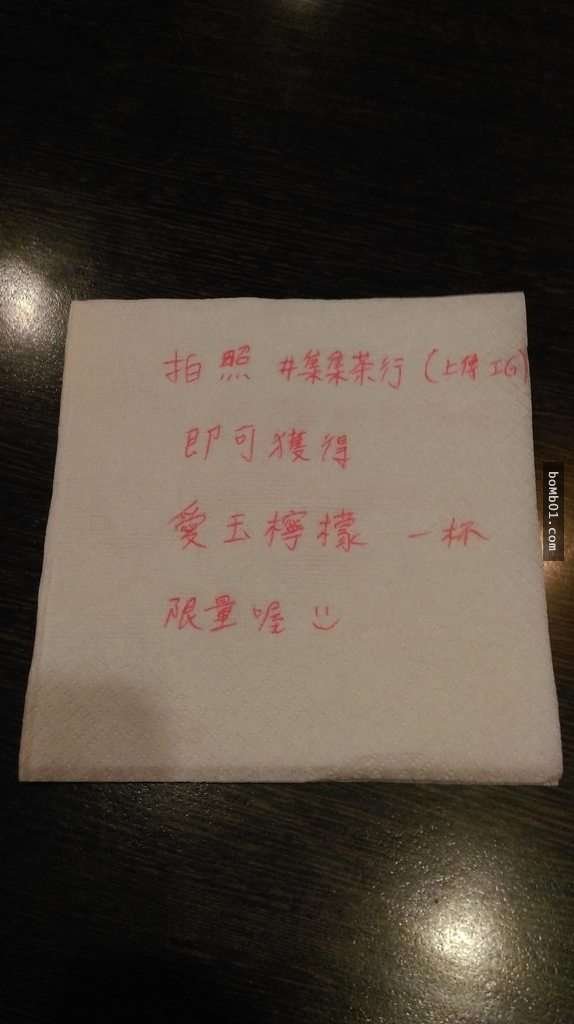 拍照 #集集茶行 (上傳IG)
即可獲得
愛玉檸檬 一杯
限量喔 :)
boMb01.com